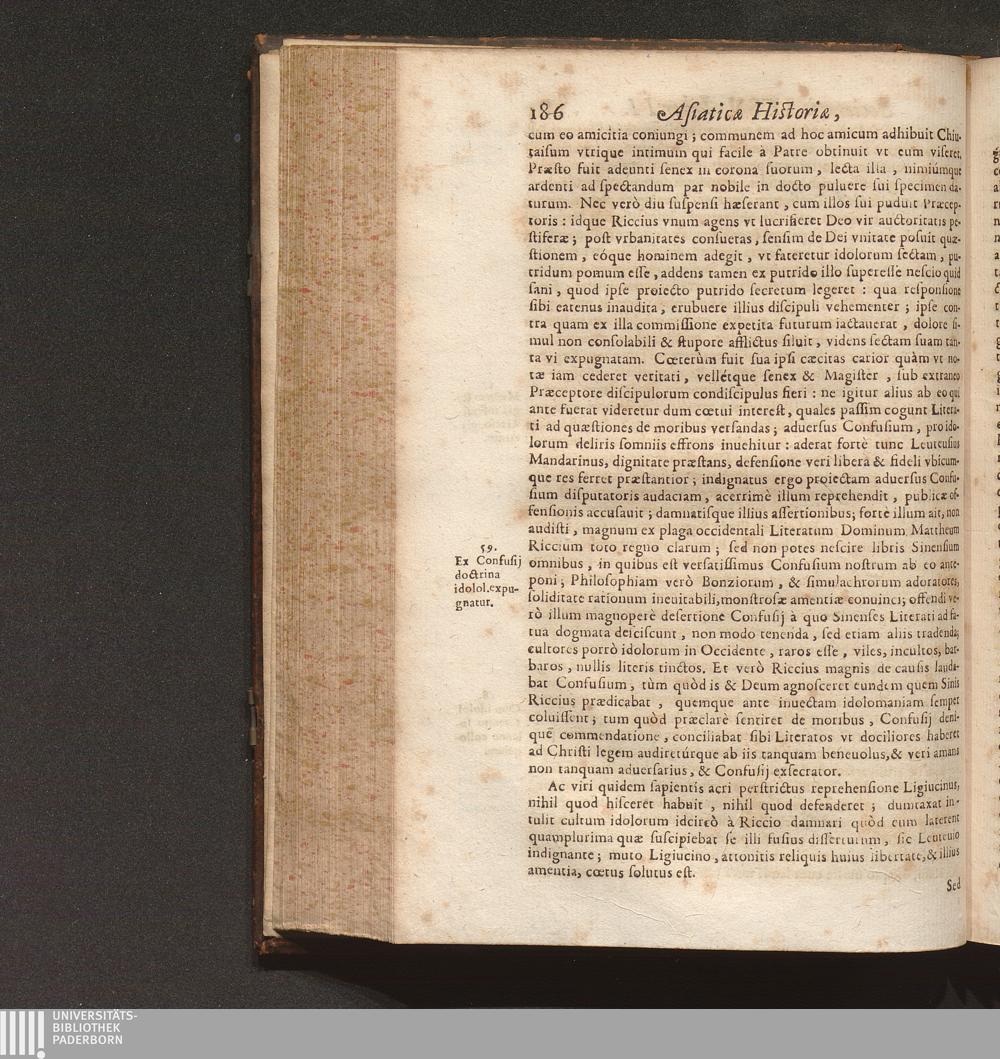 186 Asiaticæ Historiæ,
cum eo amicitia coniungi; communem ad hoc amicum adhibuit Chiu-
taisum vtrique intimum qui facile à Patre obtinuit vt eum viseret.
Præsto fuit adeunti senex in corona suorum, lecta illa, nimiúmque
ardenti ad spectandum par nobile in docto puluere sui specimen da-
turum. Nec verò diu suspensi hæserant, cum illos sui puduit Præcep-
toris: idque Riccius vnum agens vt lucrifieret Deo vir auctoritatis pe-
stiferæ; post vrbanitates consuetas, sensim de Dei vnitate posuit quæ-
stionem, eóque hominem adegit, vt fateretur idolorum sectam, pu-
tridum pomum esse, addens tamen ex putrido illo superesse nescio quid
sani, quod ipse proiecto putrido secretum legeret: qua responsione
sibi eatenus inaudita, erubuere illius discipuli vehementer; ipse con-
tra quam ex illa commissione expetita futurum iactauerat, dolore si-
mul non consolabili & stupore afflictus siluit, videns sectam suam tan-
ta vi expugnatam. Cœterùm fuit sua ipsi cæcitas carior quàm vt no-
tæ iam cederet veritati, vellétque senex & Magister, sub extraneo
Præceptore discipulorum condiscipulus fieri: ne igitur alius ab eo qui
ante fuerat videretur dum cœtui interest, quales passim cogunt Litera-
ti ad quæstiones de moribus versandas; aduersus Confusium, pro ido-
lorum deliris somniis effrons inuehitur: aderat fortè tunc Leuteusius
Mandarinus, dignitate præstans, defensione veri libera & fideli vbicum-
que res ferret præstantior; indignatus ergo proiectam aduersus Confu-
sium disputatoris audaciam, acerrimè illum reprehendit, publicæ of-
fensionis accusauit; damnatisque illius assertionibus; fortè illum ait, non
audisti, magnum ex plaga occidentali Literatum Dominum Mattheum
Riccium toto regno clarum; sed non potes nescire libris Sinensium
omnibus, in quibus est versatissimus Confusium nostrum ab eo ante-
poni; Philosophiam verò Bonziorum, & simulachrorum adoratores,
soliditate rationum ineuitabili, monstrosæ amentiæ conuinci; offendi ve-
rò illum magnoperè desertione Confusij à quo Sinenses Literati ad fa-
tua dogmata deiciscunt, non modo tenenda, sed etiam aliis tradenda;
cultores porrò idolorum in Occidente, raros esse, viles, incultos, bar-
baros, nullis literis tinctos. Et verò Riccius magnis de causis lauda-
bat Confusium, tùm quòd is & Deum agnosceret eundem quem Sinis
Riccius prædicabat, quemque ante inuectam idolomaniam semper
coluissent; tum quòd præclarè sentiret de moribus, Confusij deni-
quē commendatione, conciliabat sibi Literatos vt dociliores haberet
ad Christi legem audiretúrque ab iis tanquam beneuolus, & veri amans
non tanquam aduersarius, & Confusij exsecrator.
Ac viri quidem sapientis acri perstrictus reprehensione Ligiucinus,
nihil quod hisceret habuit, nihil quod defenderet; dumtaxat in-
tulit cultum idolorum idcircò à Riccio damnari quòd eum laterent
quamplurima quæ suscipiebat se illi fusius disserturum, sic Leuteuio
indignante; muto Ligiucino, attonitis reliquis huius libertate, & illius
amentia, cœtus solutus est.
Sed
59.
Ex Confusij
doctrina
idolol. expu-
gnatur.
UNIVERSITÄTS-
BIBLIOTHEK
PADERBORN